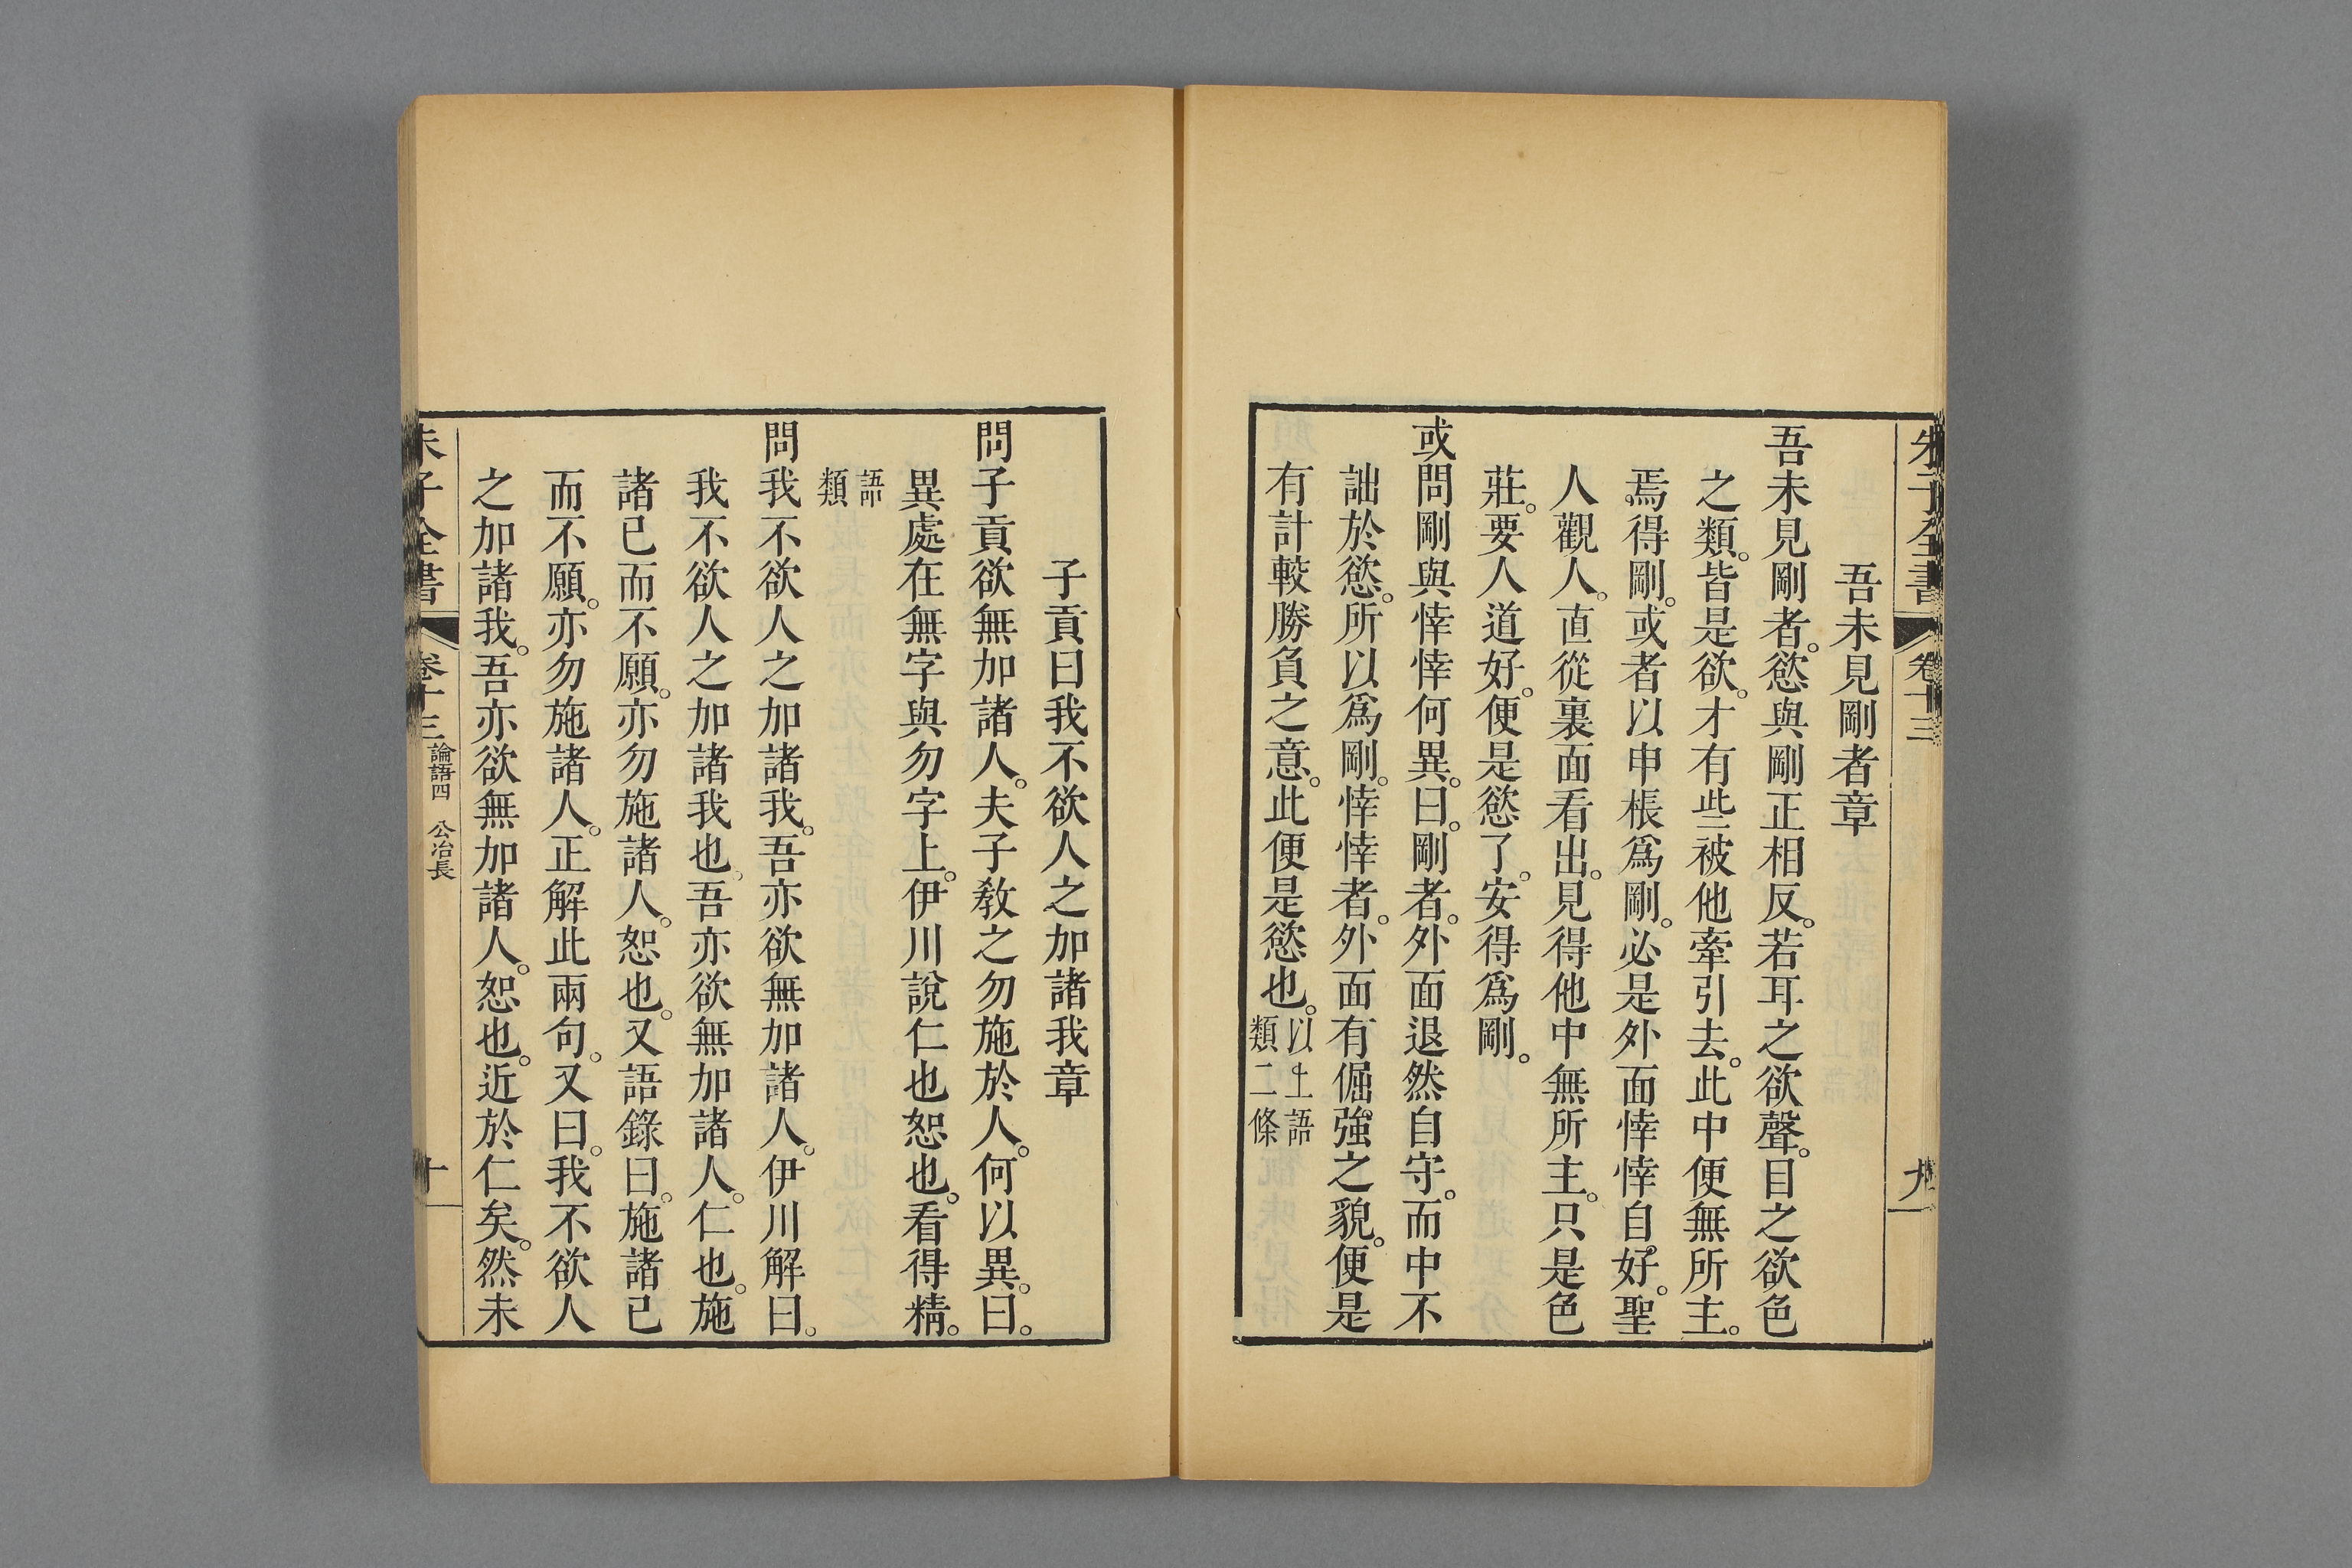 朱子全書 卷十三 九
吾未見剛者章
吾未見剛者。慾與剛正相反。若耳之欲聲。目之欲色
之類。皆是欲。才有些被他牽引去。此中便無所主。
焉得剛。或者以申棖爲剛。必是外面悻悻自好。聖
人觀人。直從裏面看出。見得他中無所主。只是色
莊。要人道好。便是慾了。安得爲剛。
或問剛與悻悻何異。曰。剛者。外面退然自守。而中不
詘於慾。所以爲剛。悻悻者。外面有倔強之貌。便是
有計較勝負之意。此便是慾也。以上語
類二條
子貢曰我不欲人之加諸我章
問子貢欲無加諸人。夫子教之勿施於人。何以異。曰。
異處在無字與勿字上。伊川說仁也恕也。看得精。
語
類
問我不欲人之加諸我。吾亦欲無加諸人。伊川解曰。
我不欲人之加諸我也。吾亦欲無加諸人。仁也。施
諸已而不願。亦勿施諸人。恕也。又語錄曰。施諸己
而不願。亦勿施諸人。正解此兩句。又曰。我不欲人
之加諸我。吾亦欲無加諸人。恕也。近於仁矣。然未
朱子全書 卷十三 論語四 公冶長 十